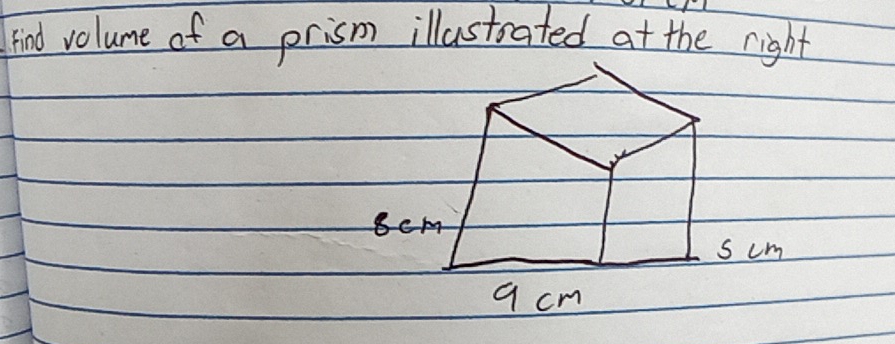 Find volume of a prism illustrated at the right
8cm
5 cm
9 cm